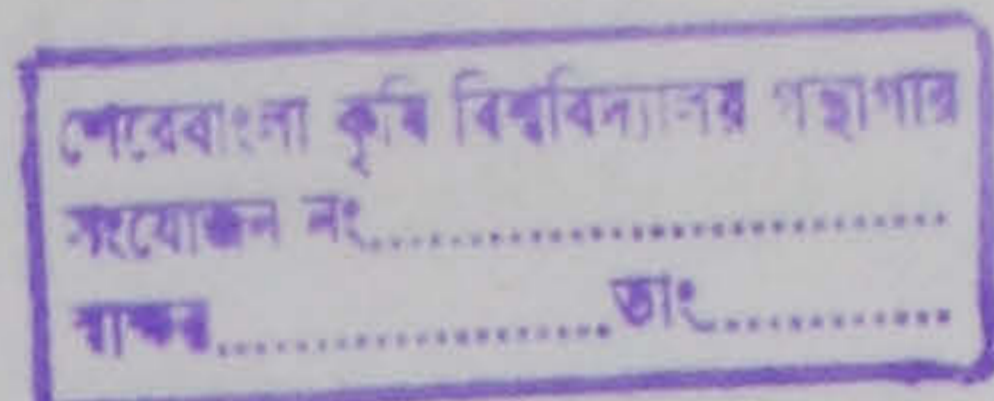 শেরেবাংলা কৃষি বিশ্ববিদ্যালয় গন্থাগার
সংযোজন নং........................................
স্বাক্ষর............................তাং................